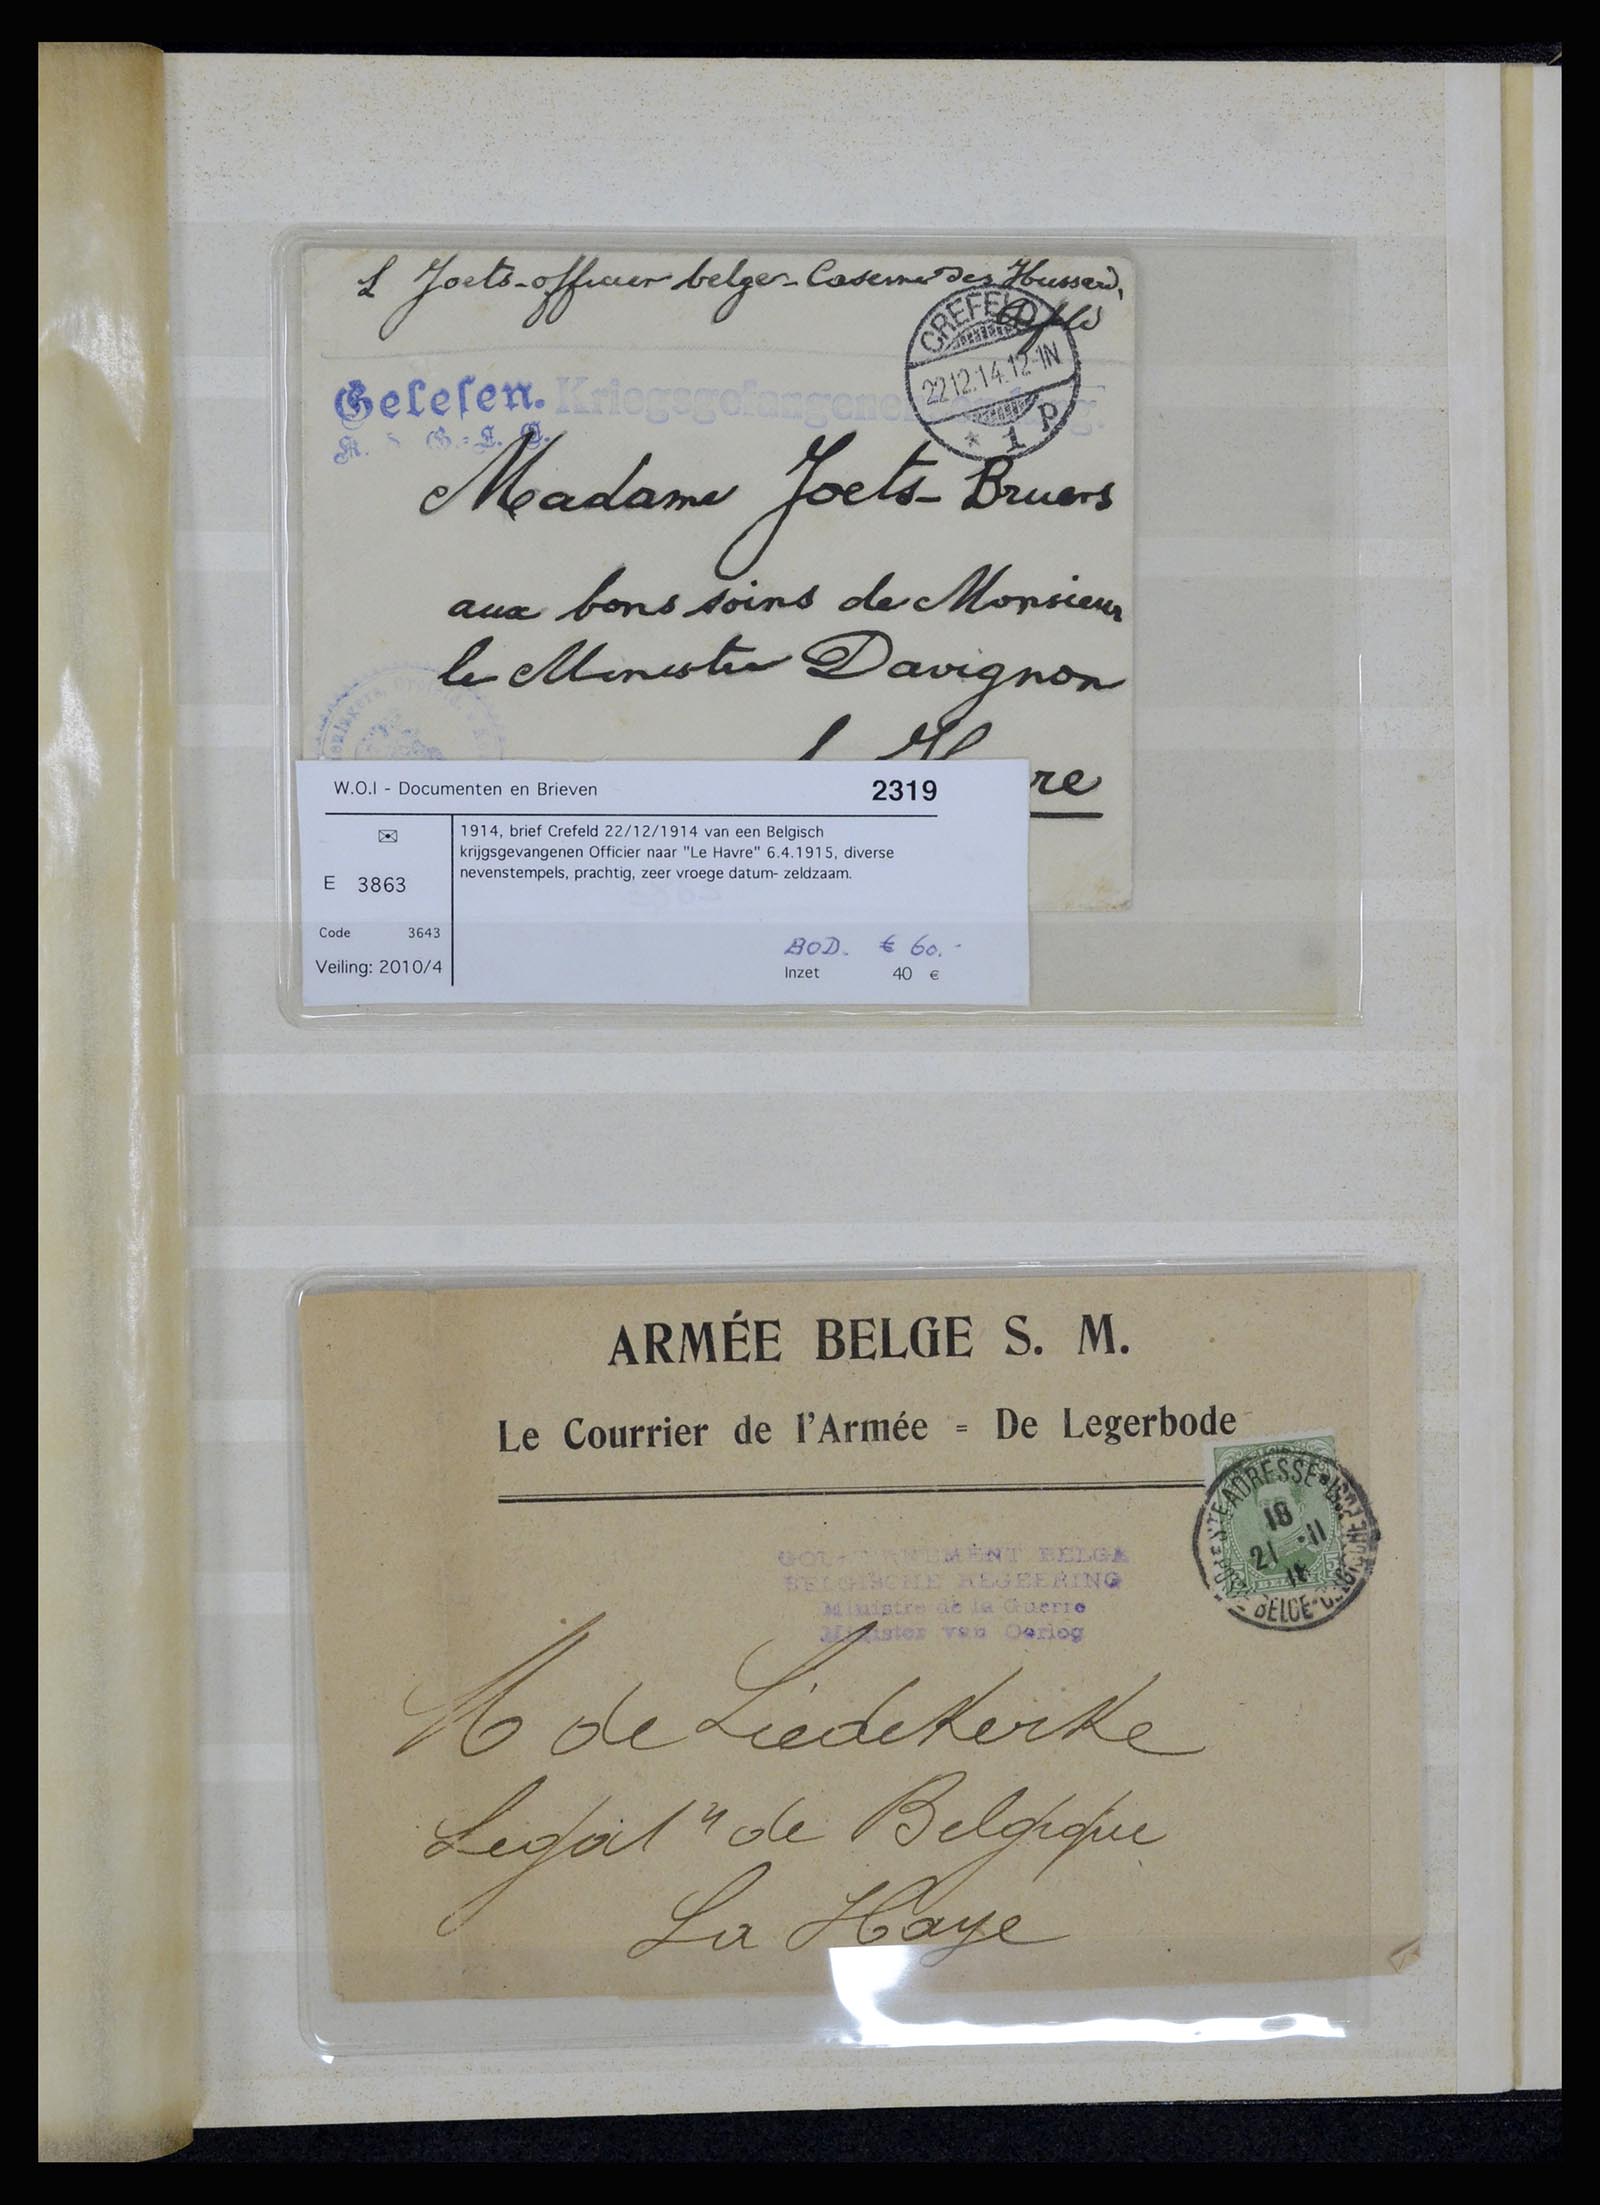 L Joets-officier belge-Caserne des Hussards,
Crefeld
CREFELD
22.12.14.12-1N
* 1 p
Gelesen. Kriegsgefangenensendung.
Madame Joets-Bruers
aux bons soins de Monsieur
le Ministre Davignon
re
W.O.I - Documenten en Brieven 2319
✉
E 3863
Code 3643
Veiling: 2010/4
1914, brief Crefeld 22/12/1914 van een Belgisch
krijgsgevangenen Officier naar "Le Havre" 6.4.1915, diverse
nevenstempels, prachtig, zeer vroege datum- zeldzaam.
BOD. € 60.-
Inzet 40 €
ARMÉE BELGE S. M.
Le Courrier de l'Armée = De Legerbode
ADRESSE
18
21 -11
BELGE
GOUVERNEMENT BELGE
BELGISCHE REGEERING
Ministre de la Guerre
Minister van Oorlog
M de Liedekerke
Legatn de Belgique
La Haye